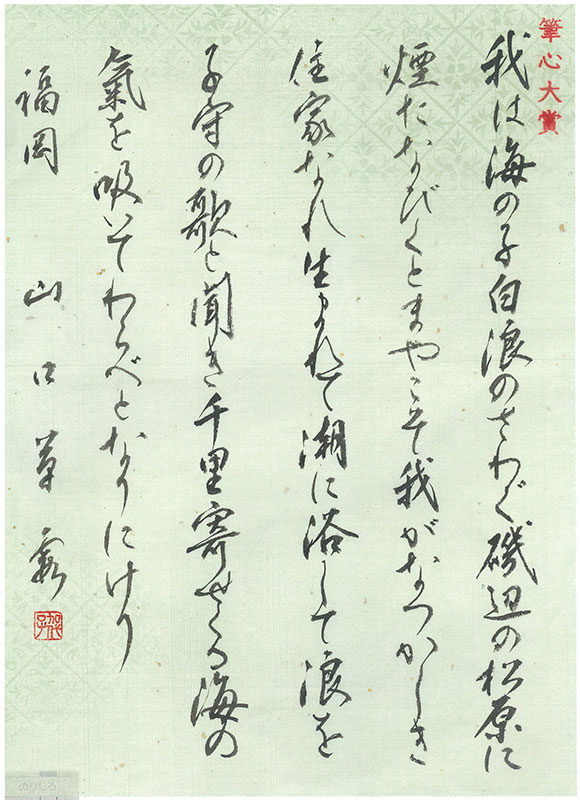 筆心大賞
我は海の子白浪のさわぐ磯辺の松原に
煙たなびくとまやこそ我がなつかしき
住家なれ生まれて潮に浴して浪を
子守の歌と聞き千里寄せくる海の
氣を吸いてわらべとなりにけり
福岡 山口草霞
のりしろ